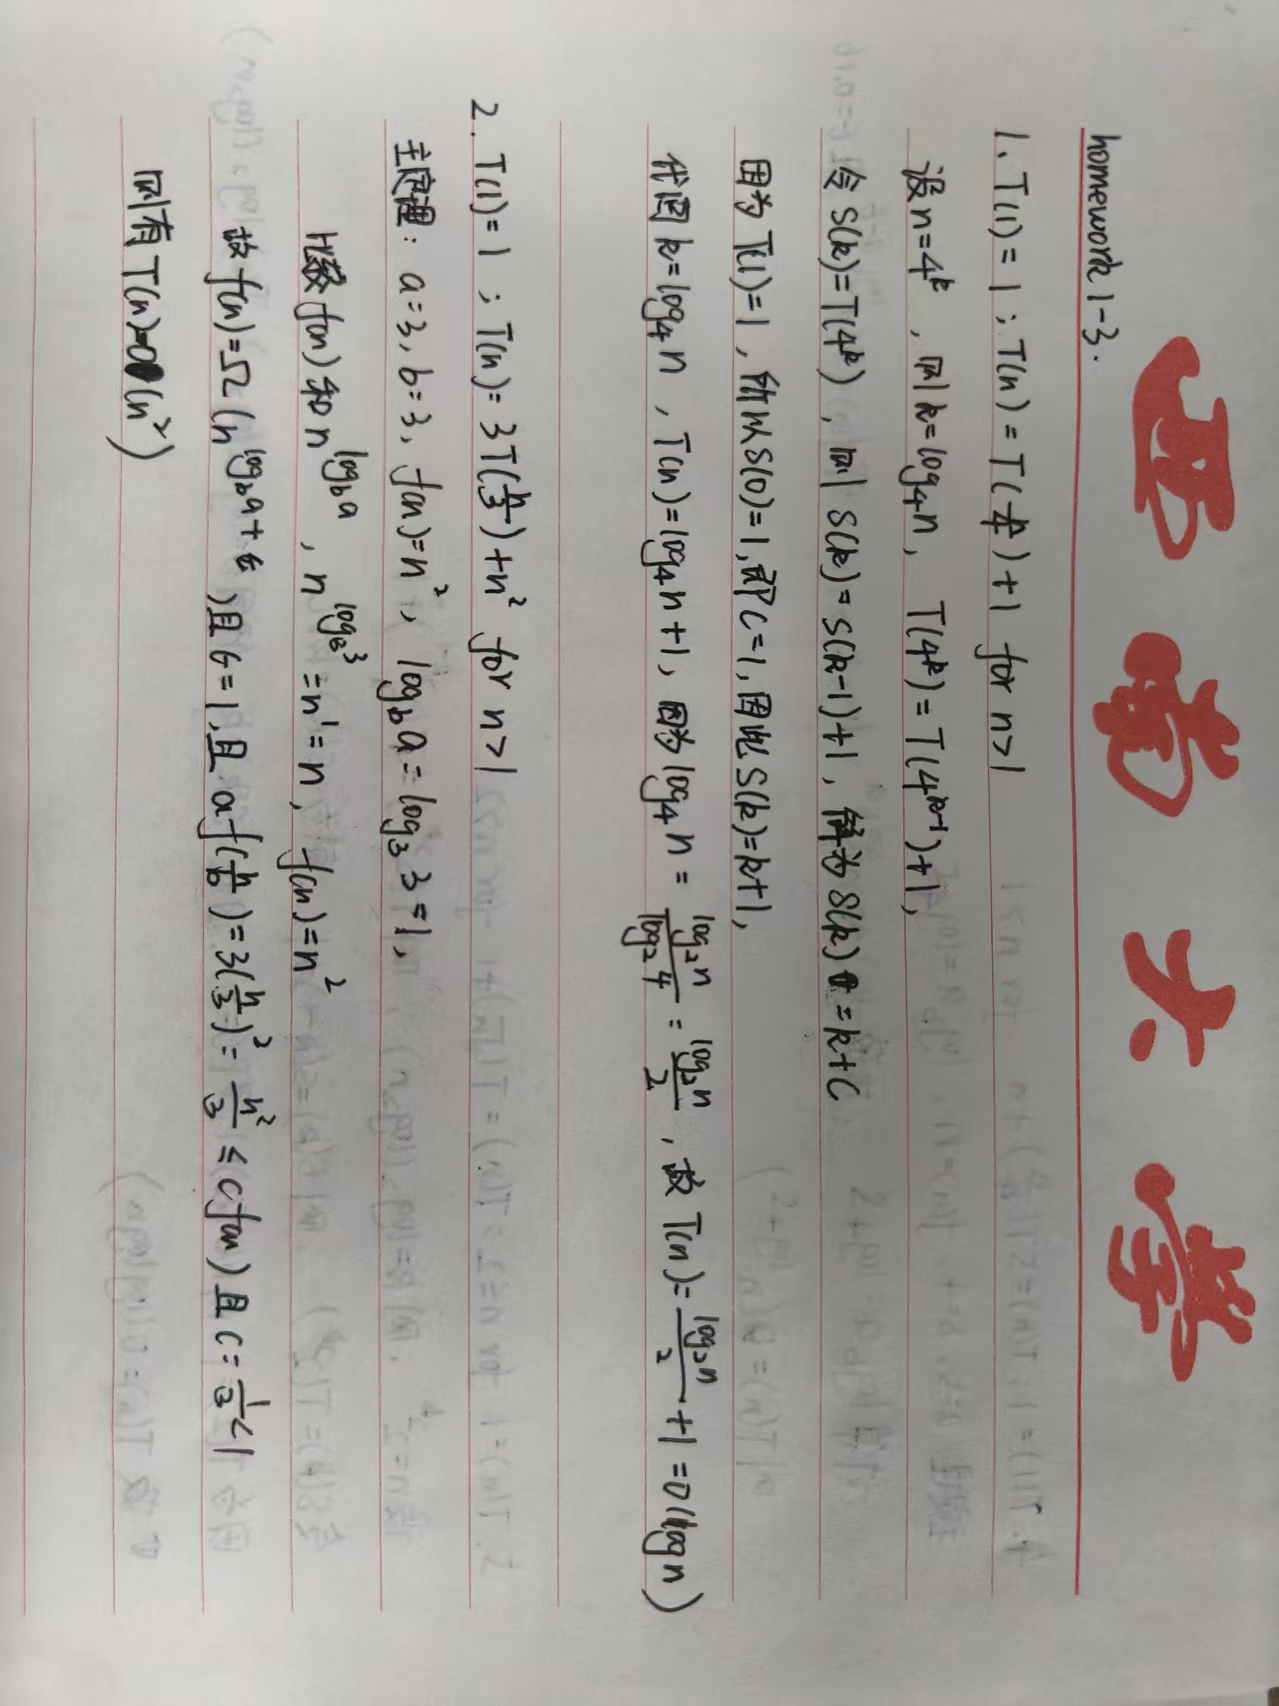 西南大学
homework 1-3.
1. T(1)=1 ; T(n)=T(n/4)+1 for n>1
设n=4^k , 则k=log₄n, T(4^k)=T(4^(k-1))+1,
令S(k)=T(4^k) , 则 S(k)=S(k-1)+1, 解为S(k)=k+C
因为T(1)=1, 所以S(0)=1, 即C=1, 因此S(k)=k+1,
代回k=log₄n , T(n)=log₄n+1, 因为log₄n = log₂n/log₂4 = log₂n/2 , 故 T(n)=log₂n/2+1=O(logn)
2. T(1)=1 ; T(n)=3T(n/3)+n² for n>1
主定理: a=3, b=3, f(n)=n², log_b a=log₃3=1,
比较f(n)和n^(log_b a) , n^(log₃3)=n¹=n, f(n)=n²
故f(n)=Ω(n^(log_b a+ϵ))且ϵ=1,且 af(n/b)=3(n/3)²=n²/3≤cf(n)且C=1/3<1
则有T(n)=O(n²)